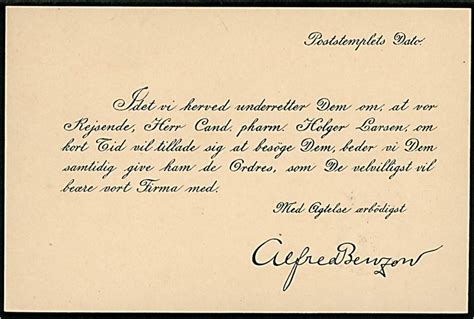 Poststemplets Dato.
Idet vi herved underretter Dem om, at vor
Rejsende, Herr Cand. pharm. Holger Larsen, om
kort Tid vil tillade sig at besöge Dem, beder vi Dem
samtidig give ham de Ordres, som De velvilligst vil
beære vort Firma med.
Med Agtelse ærbödigst
Alfred Benzon